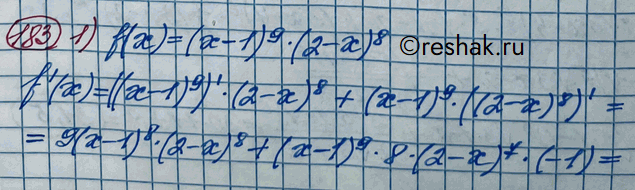 183 1) f(x)=(x-1)⁹·(2-x)⁸
©reshak.ru
f'(x)=((x-1)⁹)'·(2-x)⁸+(x-1)⁹·((2-x)⁸)'=
=9(x-1)⁸·(2-x)⁸+(x-1)⁹·8·(2-x)⁷·(-1)=